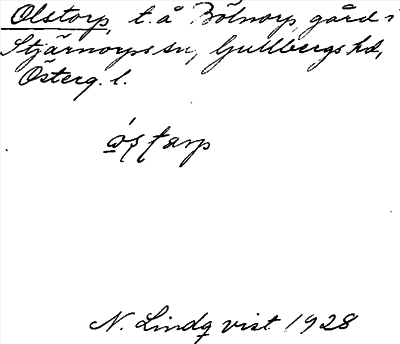 Olstorp, t. å Bölnorp, gård i
Stjärnorps sn, Gullbergs hd,
Österg. l.
ó̱ʂʈarp
N. Lindqvist 1928